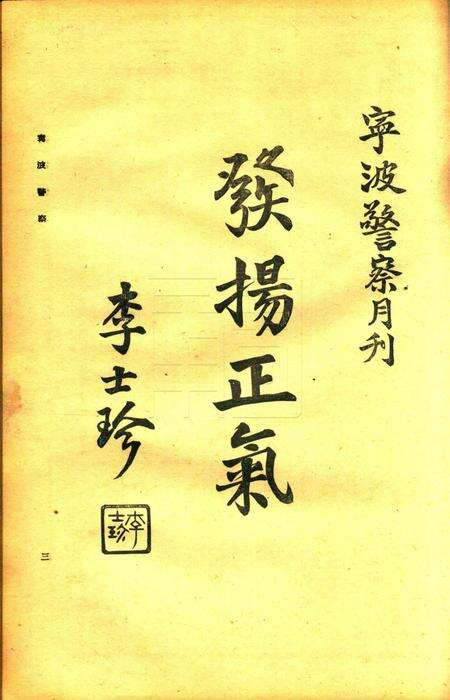 寜波警察月刊
發揚正氣
李士珍
李士珍
寧波警察
三